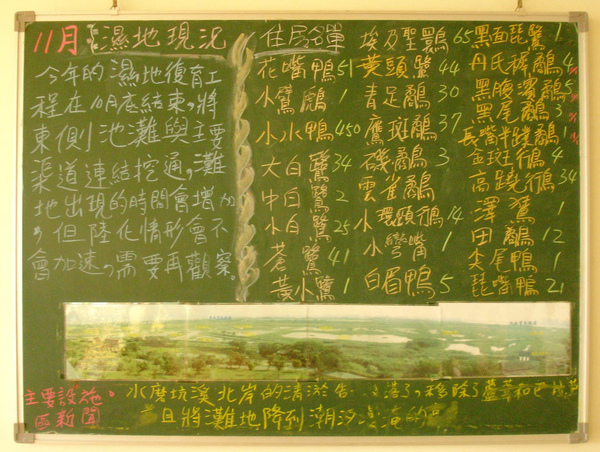 11月濕地現況
今年的濕地復育工
程在10月底結束,將
東側池灘與主要
渠道連結挖通,灘
地出現的時間會增加
,但陸化情形會不
會加速,需要再觀察。
住民名單
花嘴鴨 51
小鷿鷈 1
小水鴨 450
大白鷺 34
中白鷺 2
小白鷺 25
蒼鷺 41
黃小鷺 1
埃及聖䴉 65
黃頭鷺 44
青足鷸 30
鷹斑鷸 37
磯鷸 3
雲雀鷸
小環頸行鳥 14
小彎嘴 1
白眉鴨 5
黑面琵鷺 1
丹氏穉鷸 4
黑腹濱鷸 5
黑尾鷸 3
長嘴半蹼鷸
金斑行鳥 4
高蹺行鳥 34
澤鵟 1
田鷸 12
尖尾鴨 1
琵嘴鴨 21
主要設施。
區新聞
水磨坑溪北岸的清淤告 了,移除了蘆葦和巴
且將灘地降到潮汐